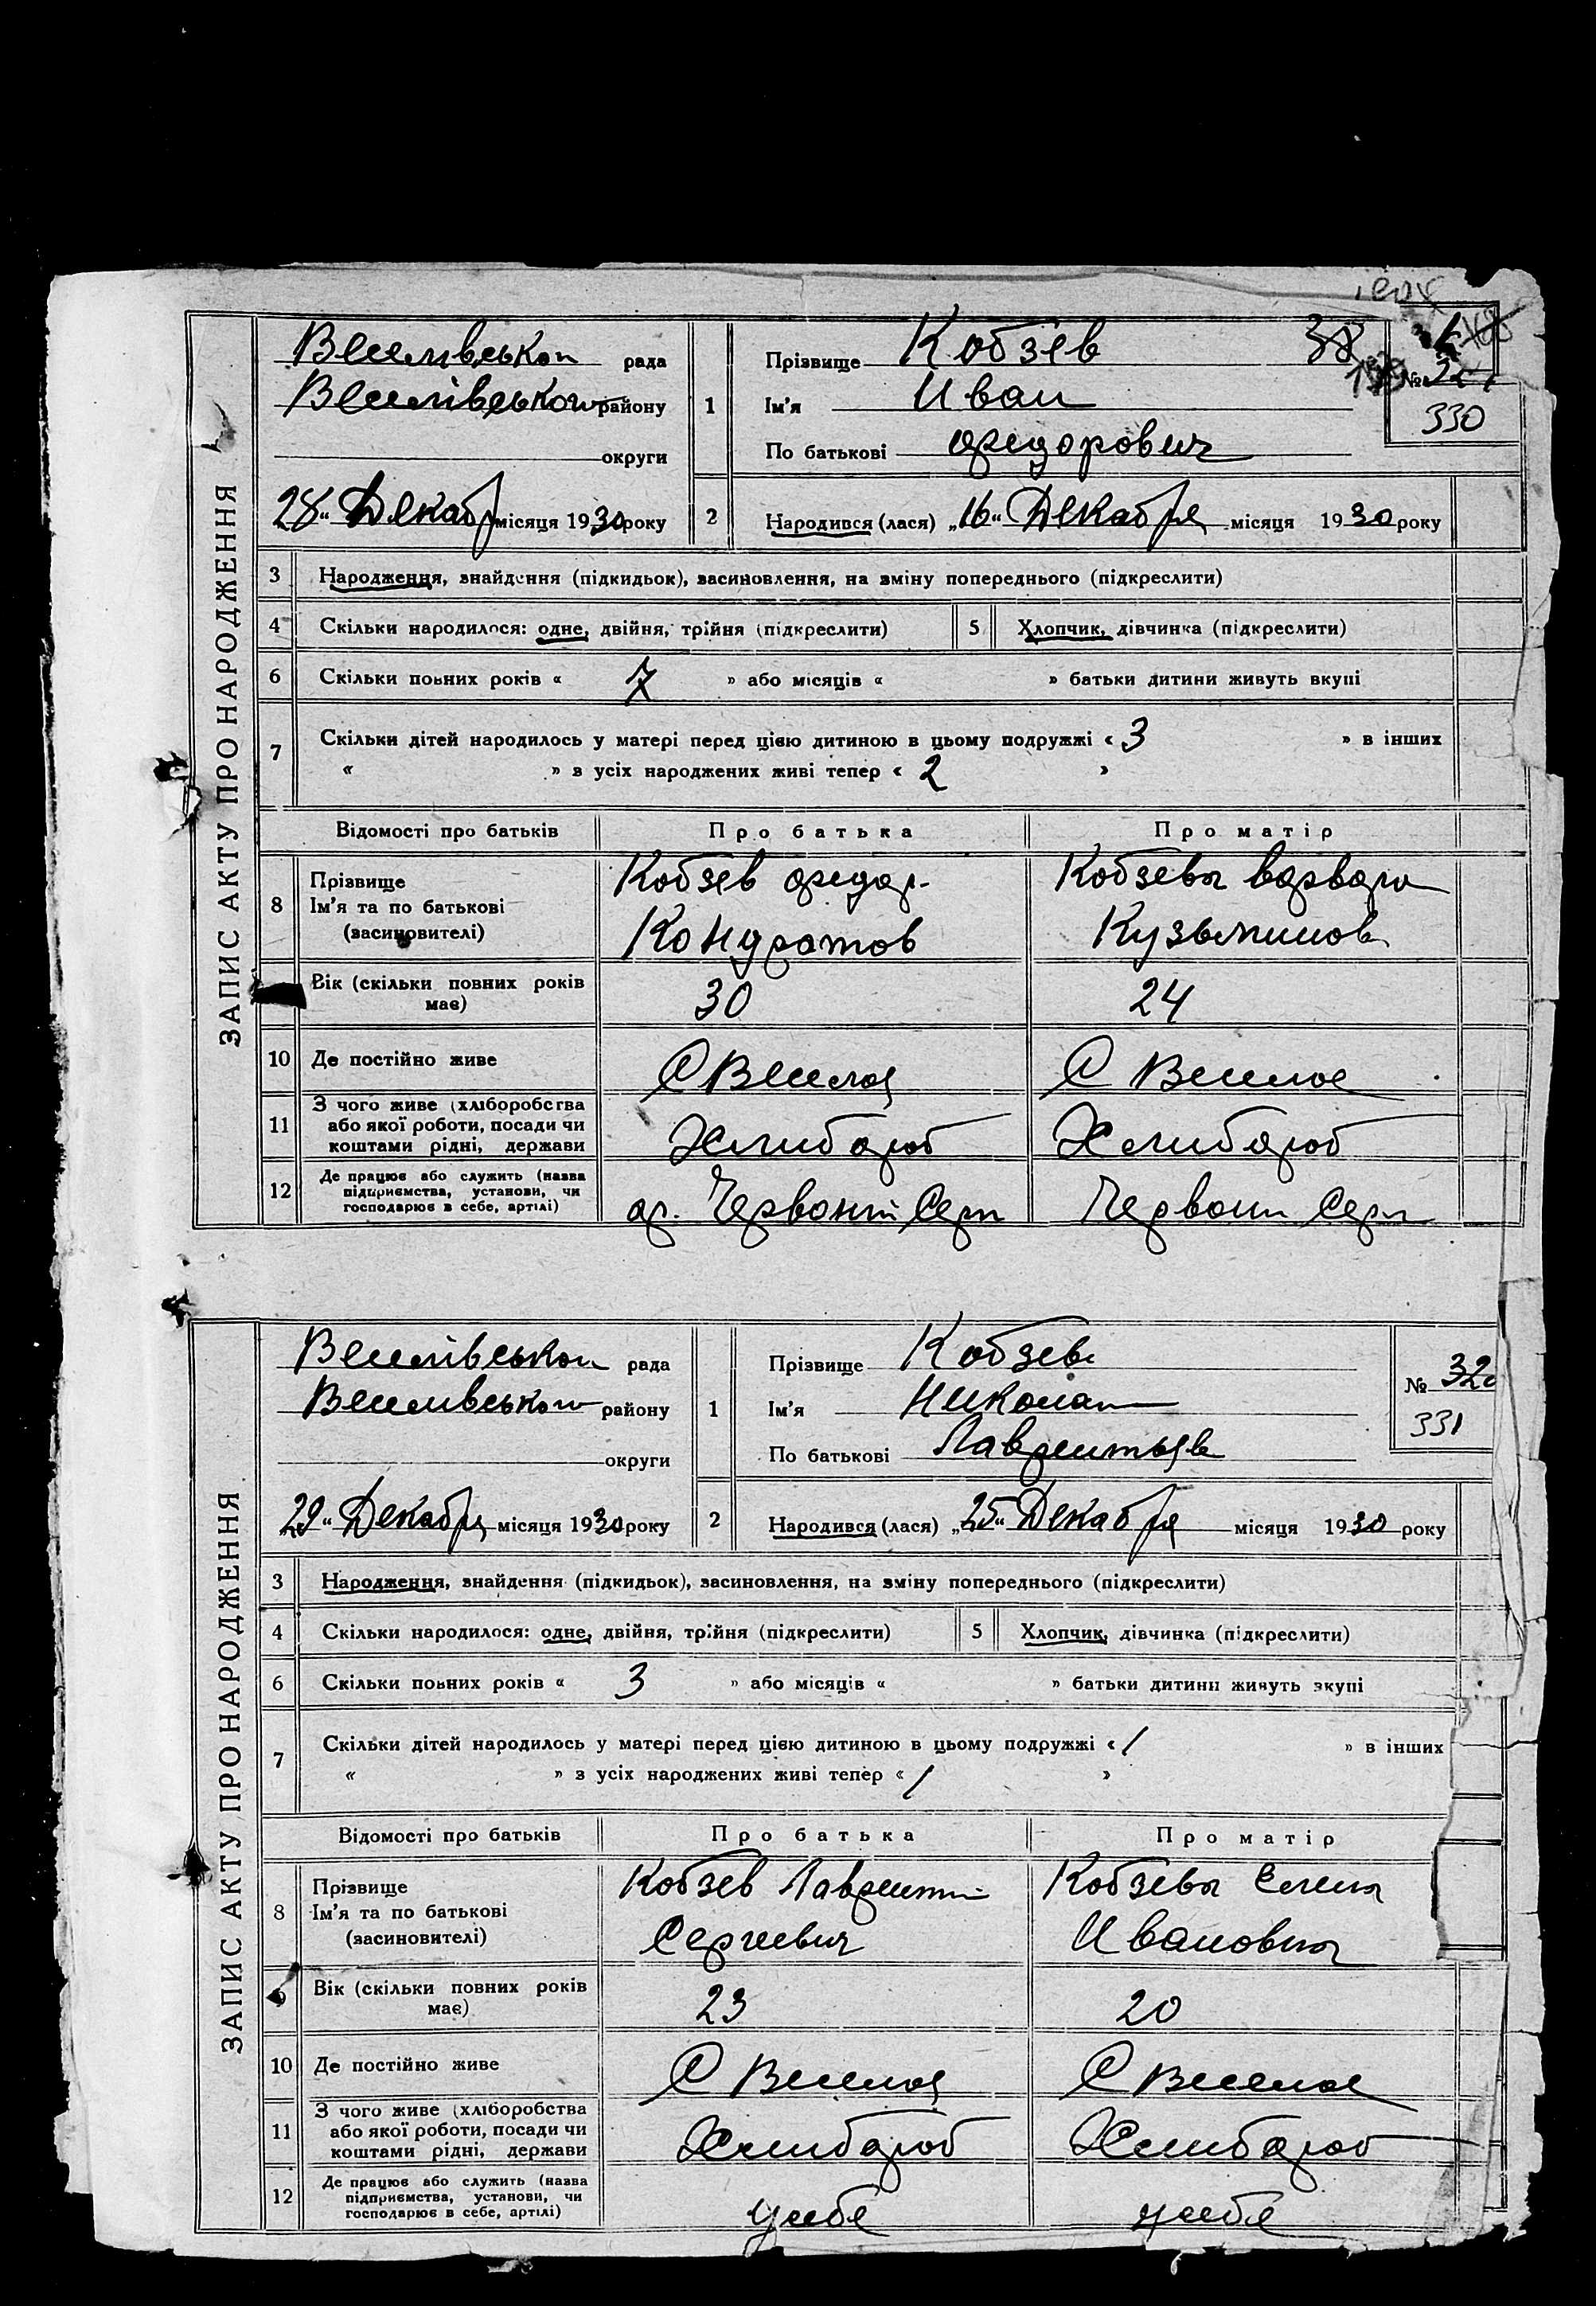 ЗАПИС АКТУ ПРО НАРОДЖЕННЯ
Веселівськои рада
Веселівського району
округи
28 " Декабр місяця 1930 року
1
Прізвище Кобзев
Ім'я Иван
По батькові Федорович
№
330
2
Народився (лася) „16" Декабря місяця 1930 року
3 Народження, знайдення (підкидьок), засиновлення, на зміну попереднього (підкреслити)
4 Скільки народилося: одне, двійня, трійня (підкреслити) 5 Хлопчик, дівчинка (підкреслити)
6 Скільки повних років « 7 » або місяців « » батьки дитини живуть вкупі
7 Скільки дітей народилось у матері перед цією дитиною в цьому подружжі « 3 » в інших
« » з усіх народжених живі тепер « 2 »
Відомості про батьків Про батька Про матір
8 Прізвище Ім'я та по батькові (засиновителі)
Кобзев Федор Кондратов
Кобзева Варвара Кузьминов
Вік (скільки повних років має) 30 24
10 Де постійно живе С Веселоя С Веселое
11 З чого живе (хліборобства або якої роботи, посади чи коштами рідні, держави Хлибороб Хлибороб
12 Де працює або служить (назва підприємства, установи, чи господарює в себе, артілі) ар. Червоний Серп Червони Серп
ЗАПИС АКТУ ПРО НАРОДЖЕННЯ
Веселівськои рада
Веселивського району
округи
29 " Декабря місяця 1930 року
1
Прізвище Кобзев
Ім'я Николай
По батькові Лаврентьяв
№ 32
331
2
Народився (лася) „25" Декабря місяця 1930 року
3 Народження, знайдення (підкидьок), засиновлення, на зміну попереднього (підкреслити)
4 Скільки народилося: одне, двійня, трійня (підкреслити) 5 Хлопчик, дівчинка (підкреслити)
6 Скільки повних років « 3 » або місяців « » батьки дитини живуть вкупі
7 Скільки дітей народилось у матері перед цією дитиною в цьому подружжі « 1 » в інших
« » з усіх народжених живі тепер « 1 »
Відомості про батьків Про батька Про матір
8 Прізвище Ім'я та по батькові (засиновителі)
Кобзев Лаврентий Сергиевич
Кобзева Елена Ивановна
9 Вік (скільки повних років має) 23 20
10 Де постійно живе С Веселоя С Веселое
11 З чого живе (хліборобства або якої роботи, посади чи коштами рідні, держави Хлибороб Хлибороб
12 Де працює або служить (назва підприємства, установи, чи господарює в себе, артілі) усебе усебе